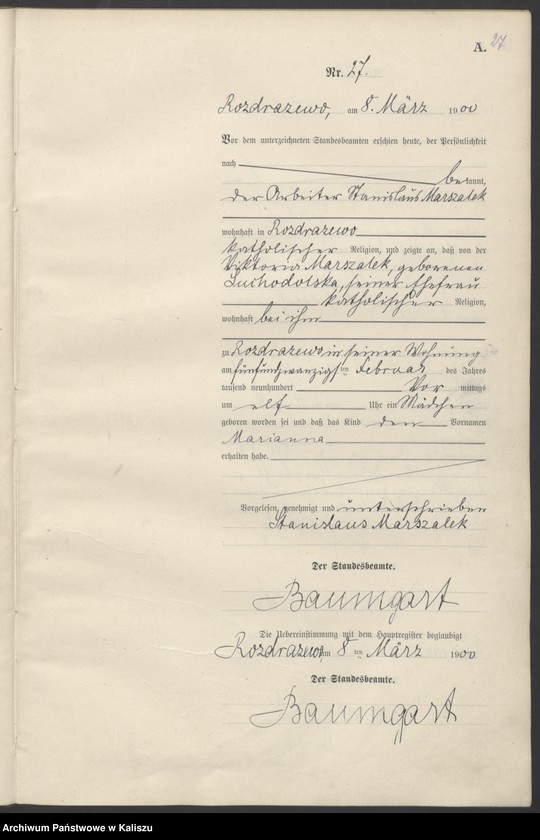 A. 27
Nr. 27.
Rozdrazewo, am 8. März 1900
Vor dem unterzeichneten Standesbeamten erschien heute, der Persönlichkeit
nach
bekannt,
der Arbeiter Stanislaus Marszalek
wohnhaft in Rozdrazewo
katholischer Religion, und zeigte an, daß von der
Viktoria Marszalek, geborenen
Suchodolska, seiner Ehefrau
katholischer Religion,
wohnhaft bei ihm
zu Rozdrazewo in seiner Wohnung
am fünfundzwanzigsten Februar des Jahres
tausend neunhundert Vor mittags
um elf Uhr ein Mädchen
geboren worden sei und daß das Kind den Vornamen
Marianna
erhalten habe.
Vorgelesen, genehmigt und unterschrieben
Stanislaus Marszalek
Der Standesbeamte.
Baumgart
Die Uebereinstimmung mit dem Hauptregister beglaubigt
Rozdrazewo, am 8 ten März 1900
Der Standesbeamte.
Baumgart
Archiwum Państwowe w Kaliszu